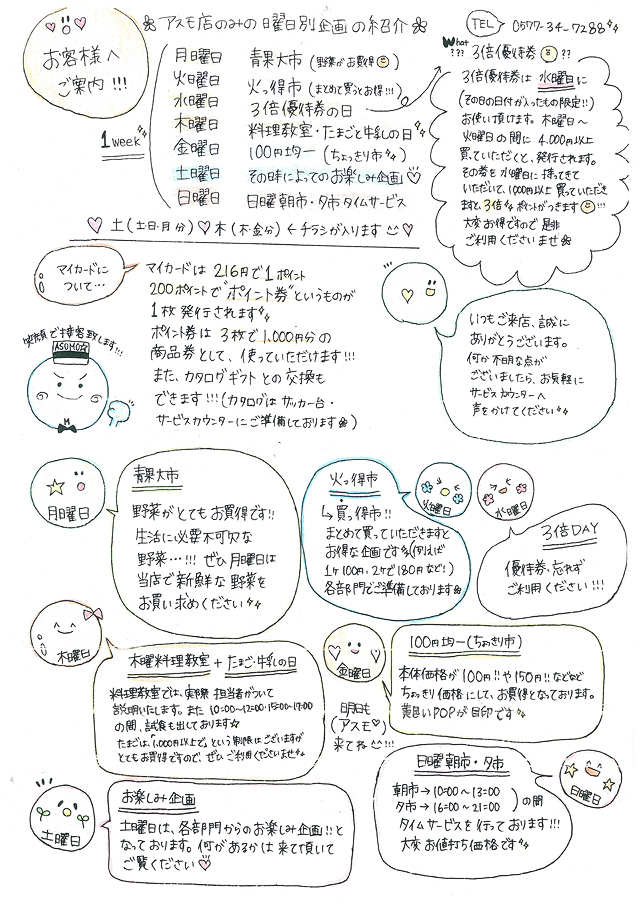 お客様へ
ご案内!!!
アスモ店のみの日曜日別企画の紹介
TEL 0577-34-7288
1week
月曜日 青果大市 (野菜がお買得)
火曜日 火っ得市 (まとめて買うとお得!!!)
水曜日 3倍優待券の日
木曜日 料理教室・たまごと牛乳の日
金曜日 100円均一 (ちょっきり市)
土曜日 その時によってのお楽しみ企画♡
日曜日 日曜朝市・夕市 タイムサービス
What
??? 3倍優待券 ??
3倍優待券は 水曜日に
(その日の日付が入ったもの限定!!)
お使い頂けます。木曜日〜
火曜日の間に 4,000円以上
買っていただくと、発行されます。
その券を 水曜日に 持ってきて
いただいて、1,000円以上 買っていただき
ますと、3倍 ポイントがつきます !!!
大変 お得ですので 是非
ご利用くださいませ
♡ 土(土・日・月 分) ♡ 木(木・金分) ← チラシが入ります ♡
マイカードに
ついて…
マイカードは 216円で1ポイント
200ポイントで"ポイント券"というものが
1枚 発行されます
ポイント券は 3枚で1,000円分の
商品券として、使っていただけます!!!
また、カタログギフトとの交換も
できます!!! (カタログは サッカー台・
サービスカウンターにご準備しております)
笑顔で接客致します!!!
ASUMO☆
M
いつもご来店、誠に
ありがとうございます。
何か不明な点が
ございましたら、お気軽に
サービスカウンターへ
声をかけてください
月曜日
青果大市
野菜がとてもお買得です!!
生活に必要不可欠な
野菜…!!! ぜひ月曜日は
当店で新鮮な野菜を
お買い求めください
火っ得市
↳ 買っ得市!!
まとめて買っていただきますと
お得な企画です (例えば
1ケ100円、2ケで180円など!)
各部門でご準備しております
火曜日
水曜日
3倍DAY
優待券、忘れず
ご利用ください!!!
木曜日
木曜料理教室 + たまご・牛乳の日
料理教室では、実際 担当者がついて
説明いたします。また 10:00〜12:00、15:00〜17:00
の間、試食も出しております☆
たまごは、「1,000円以上で」という制限はございますが
とてもお買得ですので、ぜひ ご利用くださいませ
金曜日
明日も
(アスモ♡)
来てね!!!
100円均一 (ちょっきり市)
本体価格が100円!!や150円!!などなど
ちょっきり価格にして、お買得となっております。
黄色いPOPが目印です
土曜日
お楽しみ企画
土曜日は、各部門からのお楽しみ企画!!と
なっております。何があるかは 来て頂いて
ご覧ください♡
日曜朝市・夕市
朝市→10:00〜13:00
夕市→16:00〜21:00 )の間
タイムサービスを行っております!!!
大変お値打ち価格です
日曜日